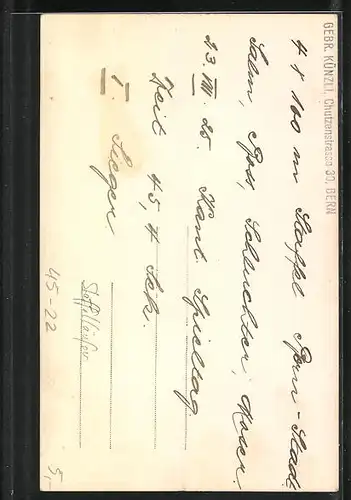 GEBR. KÜNZLI, Chutzenstrasse 30, BERN
4 x 100 m Staffel Bern-Stadt
Salm, Boss, Schluchter, Moser.
23. VIII. 25. Kant. Spieltag
Zeit 45,4 Sek.
I. Sieger.
Staffelläufer
45-22
5,-